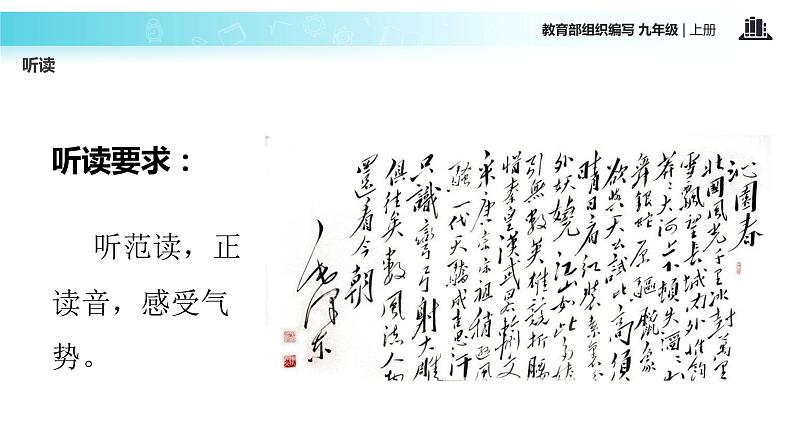 教育部组织编写 九年级 | 上册
听读
听读要求：
听范读，正
读音，感受气
势。
沁園春
北國風光千里冰封萬里
雪飄望長城內外惟餘
莽々大河上下頓失滔々山
舞銀蛇原驅臘象
欲與天公試比高須
晴日看紅裝素裹分
外妖嬈江山如此多嬌
引無數英雄競折腰
惜秦皇漢武略輸文
采唐宗宋祖稍遜風
騷一代天驕成吉思汗
只識彎弓射大雕
俱往矣數風流人物
還看今朝
毛澤東